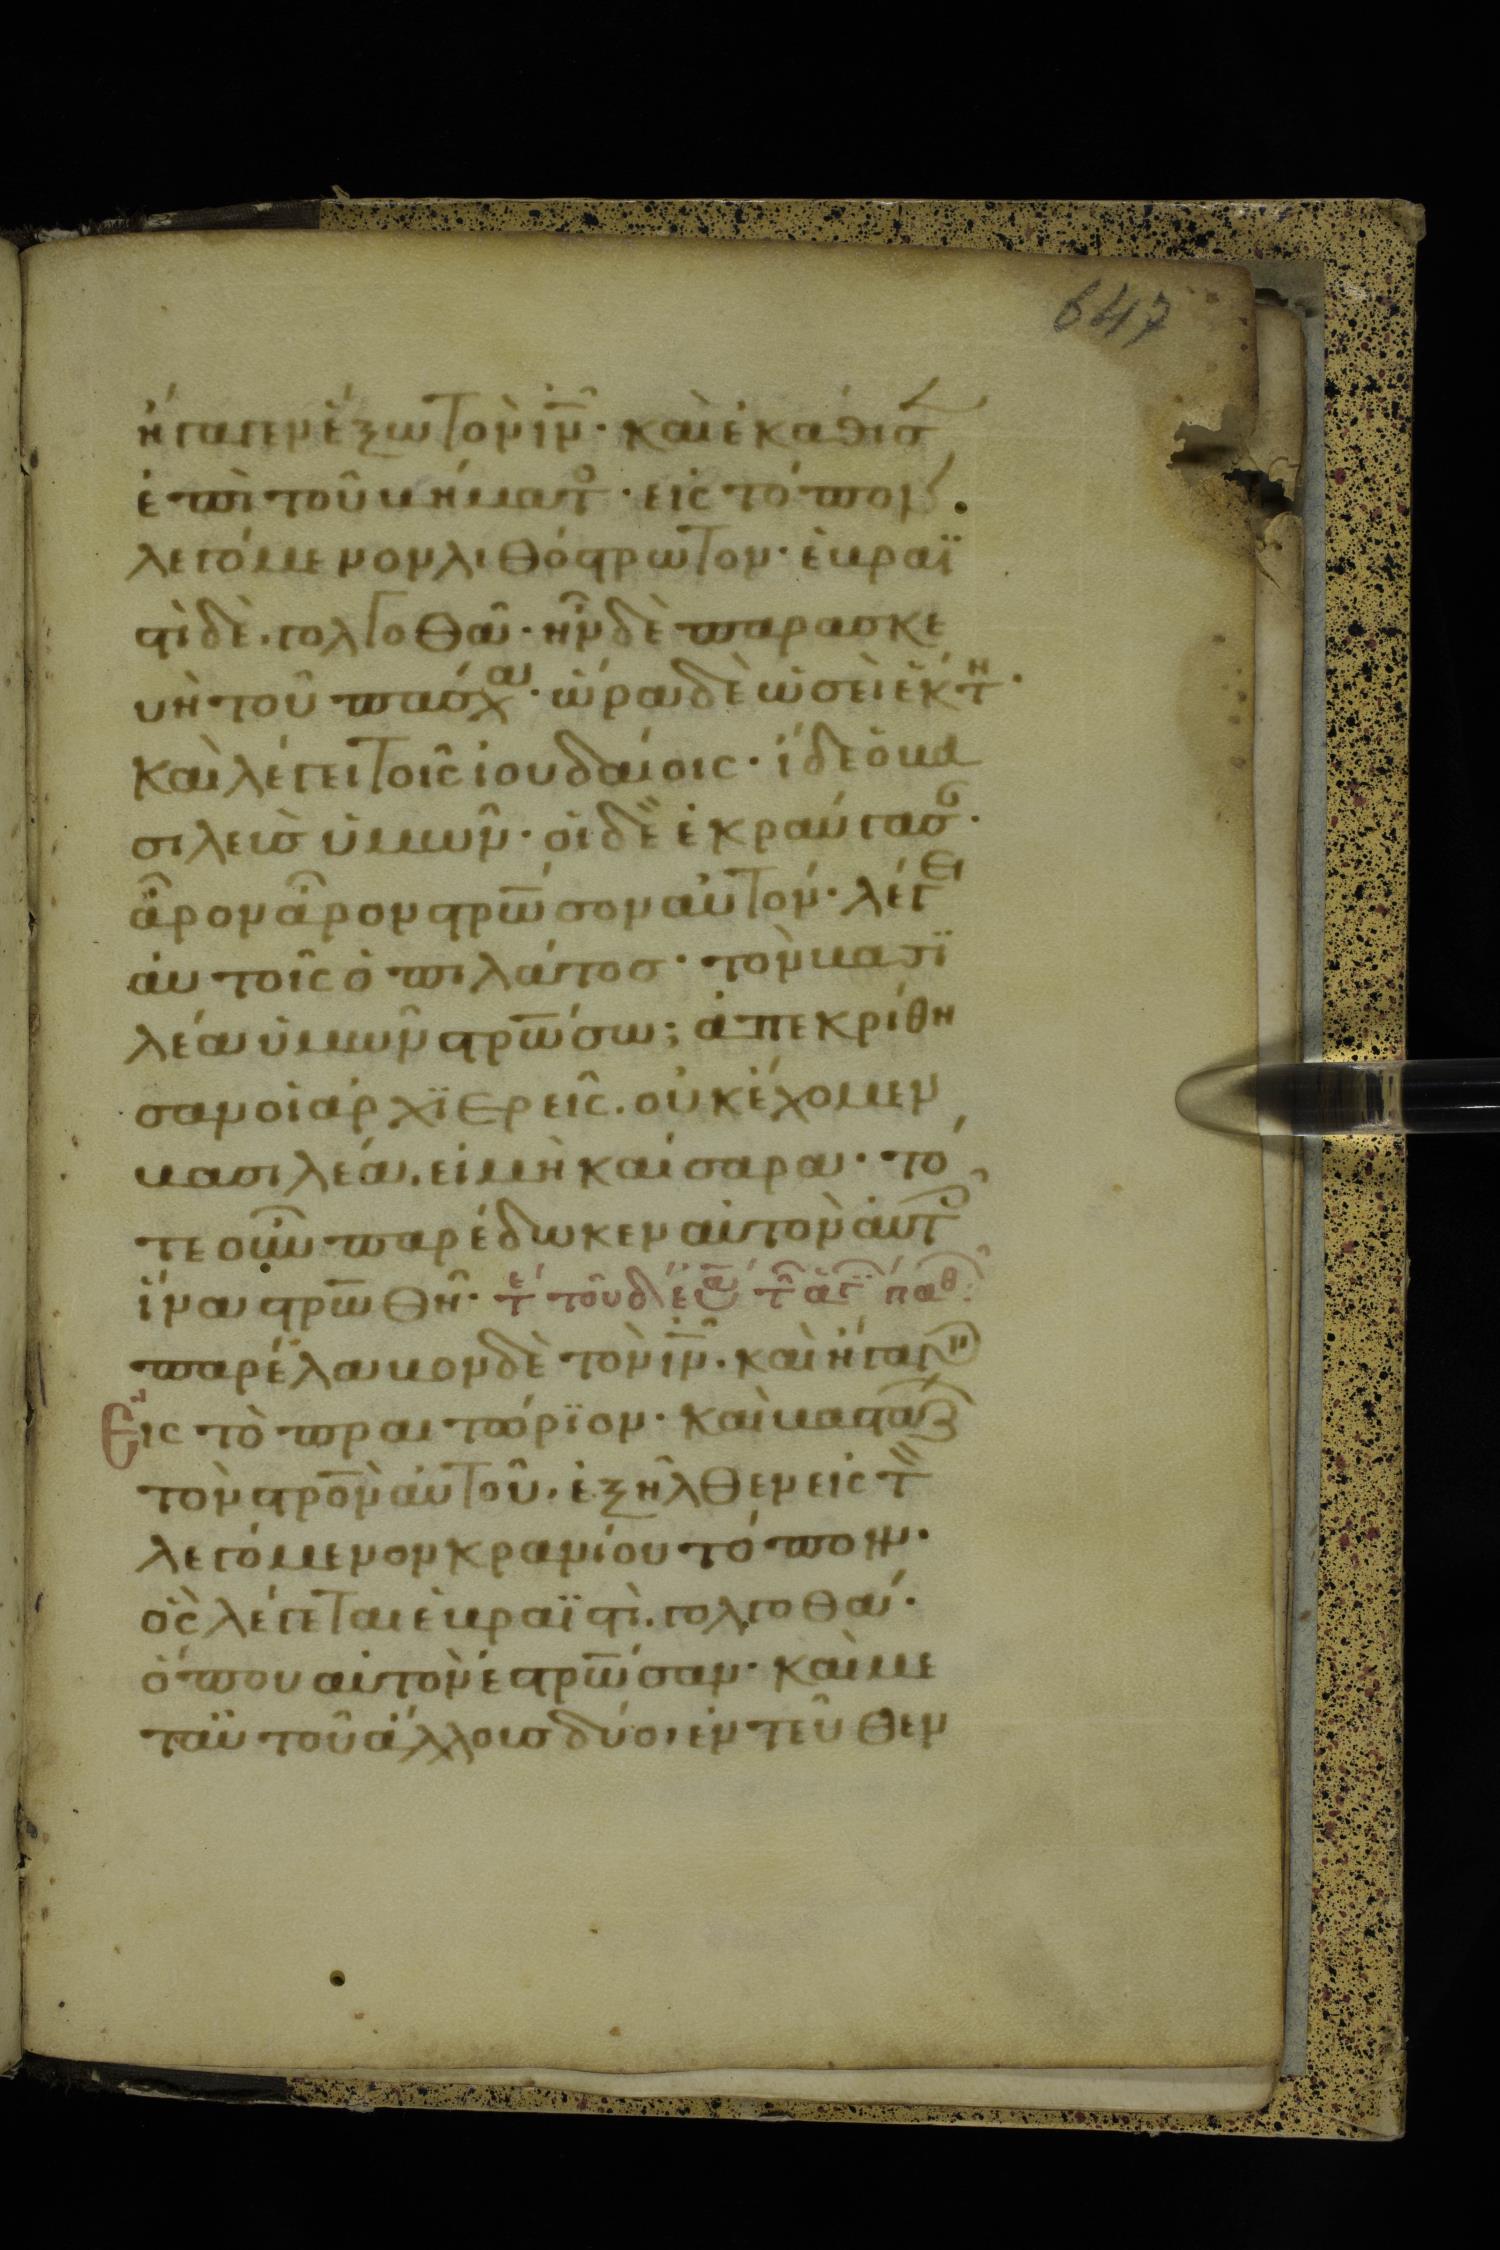 647
ἤγαγεν ἔξω τὸν ἰν̅· καὶ ἐκάθισ
ἐπὶ τοῦ βήματο· εἰς τόπον
λεγόμενον λιθόστρωτον· ἑβραϊ
στὶ δὲ. γολγοθᾶ· ἦν δὲ παρασκε
υὴ τοῦ πάσχα· ὥρα δὲ ὡσεὶ ἕκτη·
καὶ λέγει τοῖς ἰουδαίοις· ἴδε ὁ βα
σιλεὺς ὑμῶν· οἱ δὲ ἐκραύγασον·
ἆρον ἆρον στρω̅σον αὐτόν· λέγει
αὐτοῖς ὁ πιλάτος· τὸν βασι
λέα ὑμῶν στρω̅σω; ἀπεκρίθη
σαν οἱ ἀρχϊερεῖς. οὐκ ἔχομεν
βασιλέα. εἰ μὴ καίσαρα· τό
τε οὖν παρέδωκεν αὐτὸν αὐτοῖς
ἵνα στρω̅θῆ· τε τοῦ δ εὐα τ ἁγ παθ:
παρέλαβον δὲ τὸν ἰν̅. καὶ ἤγαγον
Εἰς τὸ πραιτώριον· καὶ βαστάζων
τὸν στρο̅ν αὐτοῦ. ἐξῆλθεν εἰς τὸν
λεγόμενον κρανίου τόπον·
ὃς λέγεται ἑβραϊστὶ. γολγοθά·
ὅπου αὐτὸν ἐστρω̅σαν· καὶ με
τ' αὐτοῦ ἄλλους δύο, ἐντεῦθεν